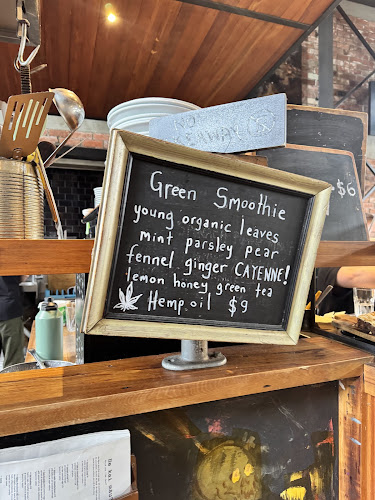 Green Smoothie
young organic leaves
mint parsley pear
fennel ginger CAYENNE!
lemon honey green tea
Hemp oil $9
$6